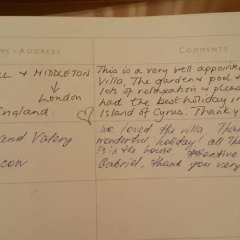 ME + ADDRESS
COMMENTS
LL + MIDDLETON
↓
London
England.
and Valery
cow
This is a very well appoint
Villa. The garden & pool
lots of relaxation &
had the best holiday
Island of Cyrus. Thank
We loved the villa. Than
wonderful holiday! all The
is in the house. attentive
Gabriel, thank you very